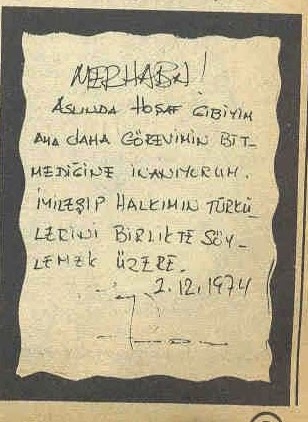 MERHABA!
ASLINDA HOŞAF GİBİYİM
AMA DAHA GÖREVİMİN BİT-
MEDİĞİNE İNANIYORUM.
İYİLEŞİP HALKIMIN TÜRKÜ-
LERİNİ BİRLİKTE SÖY-
LEMEK ÜZERE.
2.12.1974